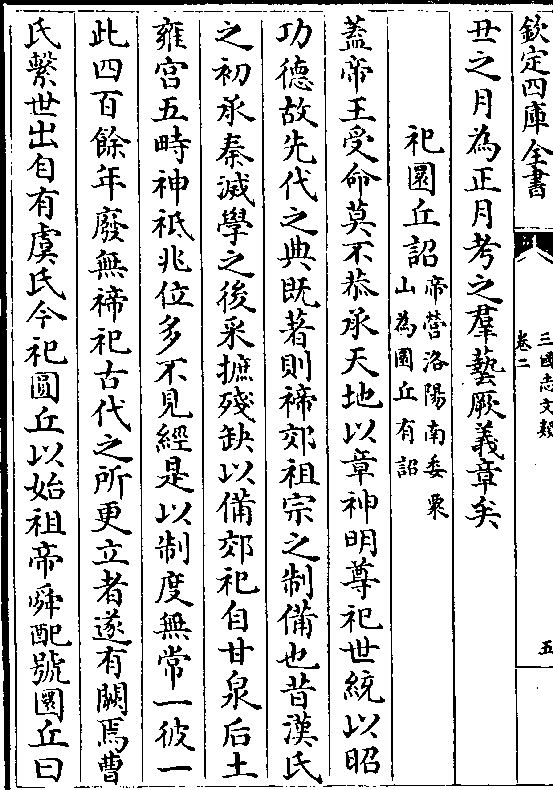 欽定四庫全書
三國志文類
卷二
五
丑之月為正月考之羣藝厥義章矣
祀圜丘詔
帝營洛陽南委粟
山為圜丘有詔
葢帝王受命莫不恭承天地以章神明尊祀世統以昭
功德故先代之典既著則禘郊祖宗之制備也昔漢氏
之初承秦滅學之後采摭殘缺以備郊祀自甘泉后土
雍宫五畤神祗兆位多不見經是以制度無常一彼一
此四百餘年廢無禘祀古代之所更立者遂有闕焉曹
氏繫世出自有虞氏今祀圓丘以始祖帝舜配號圜丘曰